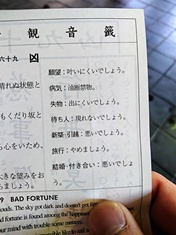 観音籤
六十九 凶
願望：叶いにくいでしょう。
病気：油断禁物。
失物：出にくいでしょう。
待ち人：現れないでしょう。
新築・引越：悪いでしょう。
旅行：やめましょう。
結婚・付き合い：悪いでしょう。
晴れぬ状態と
もくだり坂と
心をいため、
きな望みをお
ましょう。
9 BAD FORTUNE
clouds. The sky got dark and doesn't get
fortune is found among the
our mind with trouble some